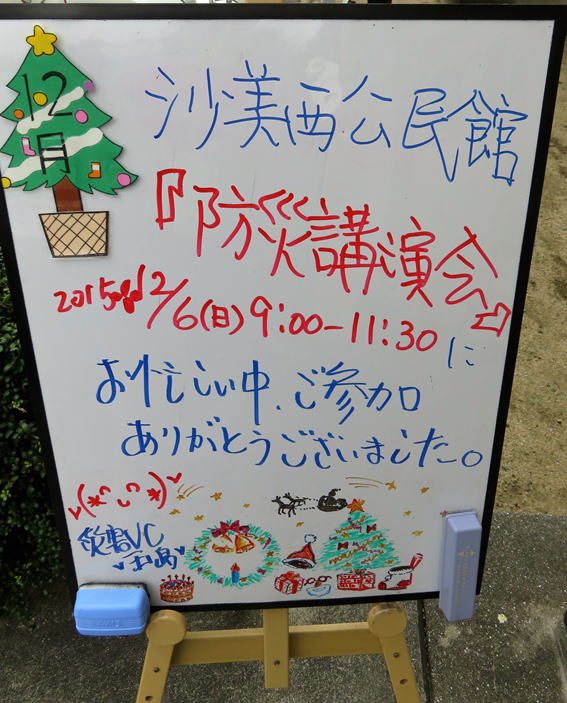 12
月
沙美西公民館
『防災講演会』
2015年12/6(日)9:00-11:30に
お忙しい中、ご参加
ありがとうございました。
(*^◡^*)
災害VC
玉島